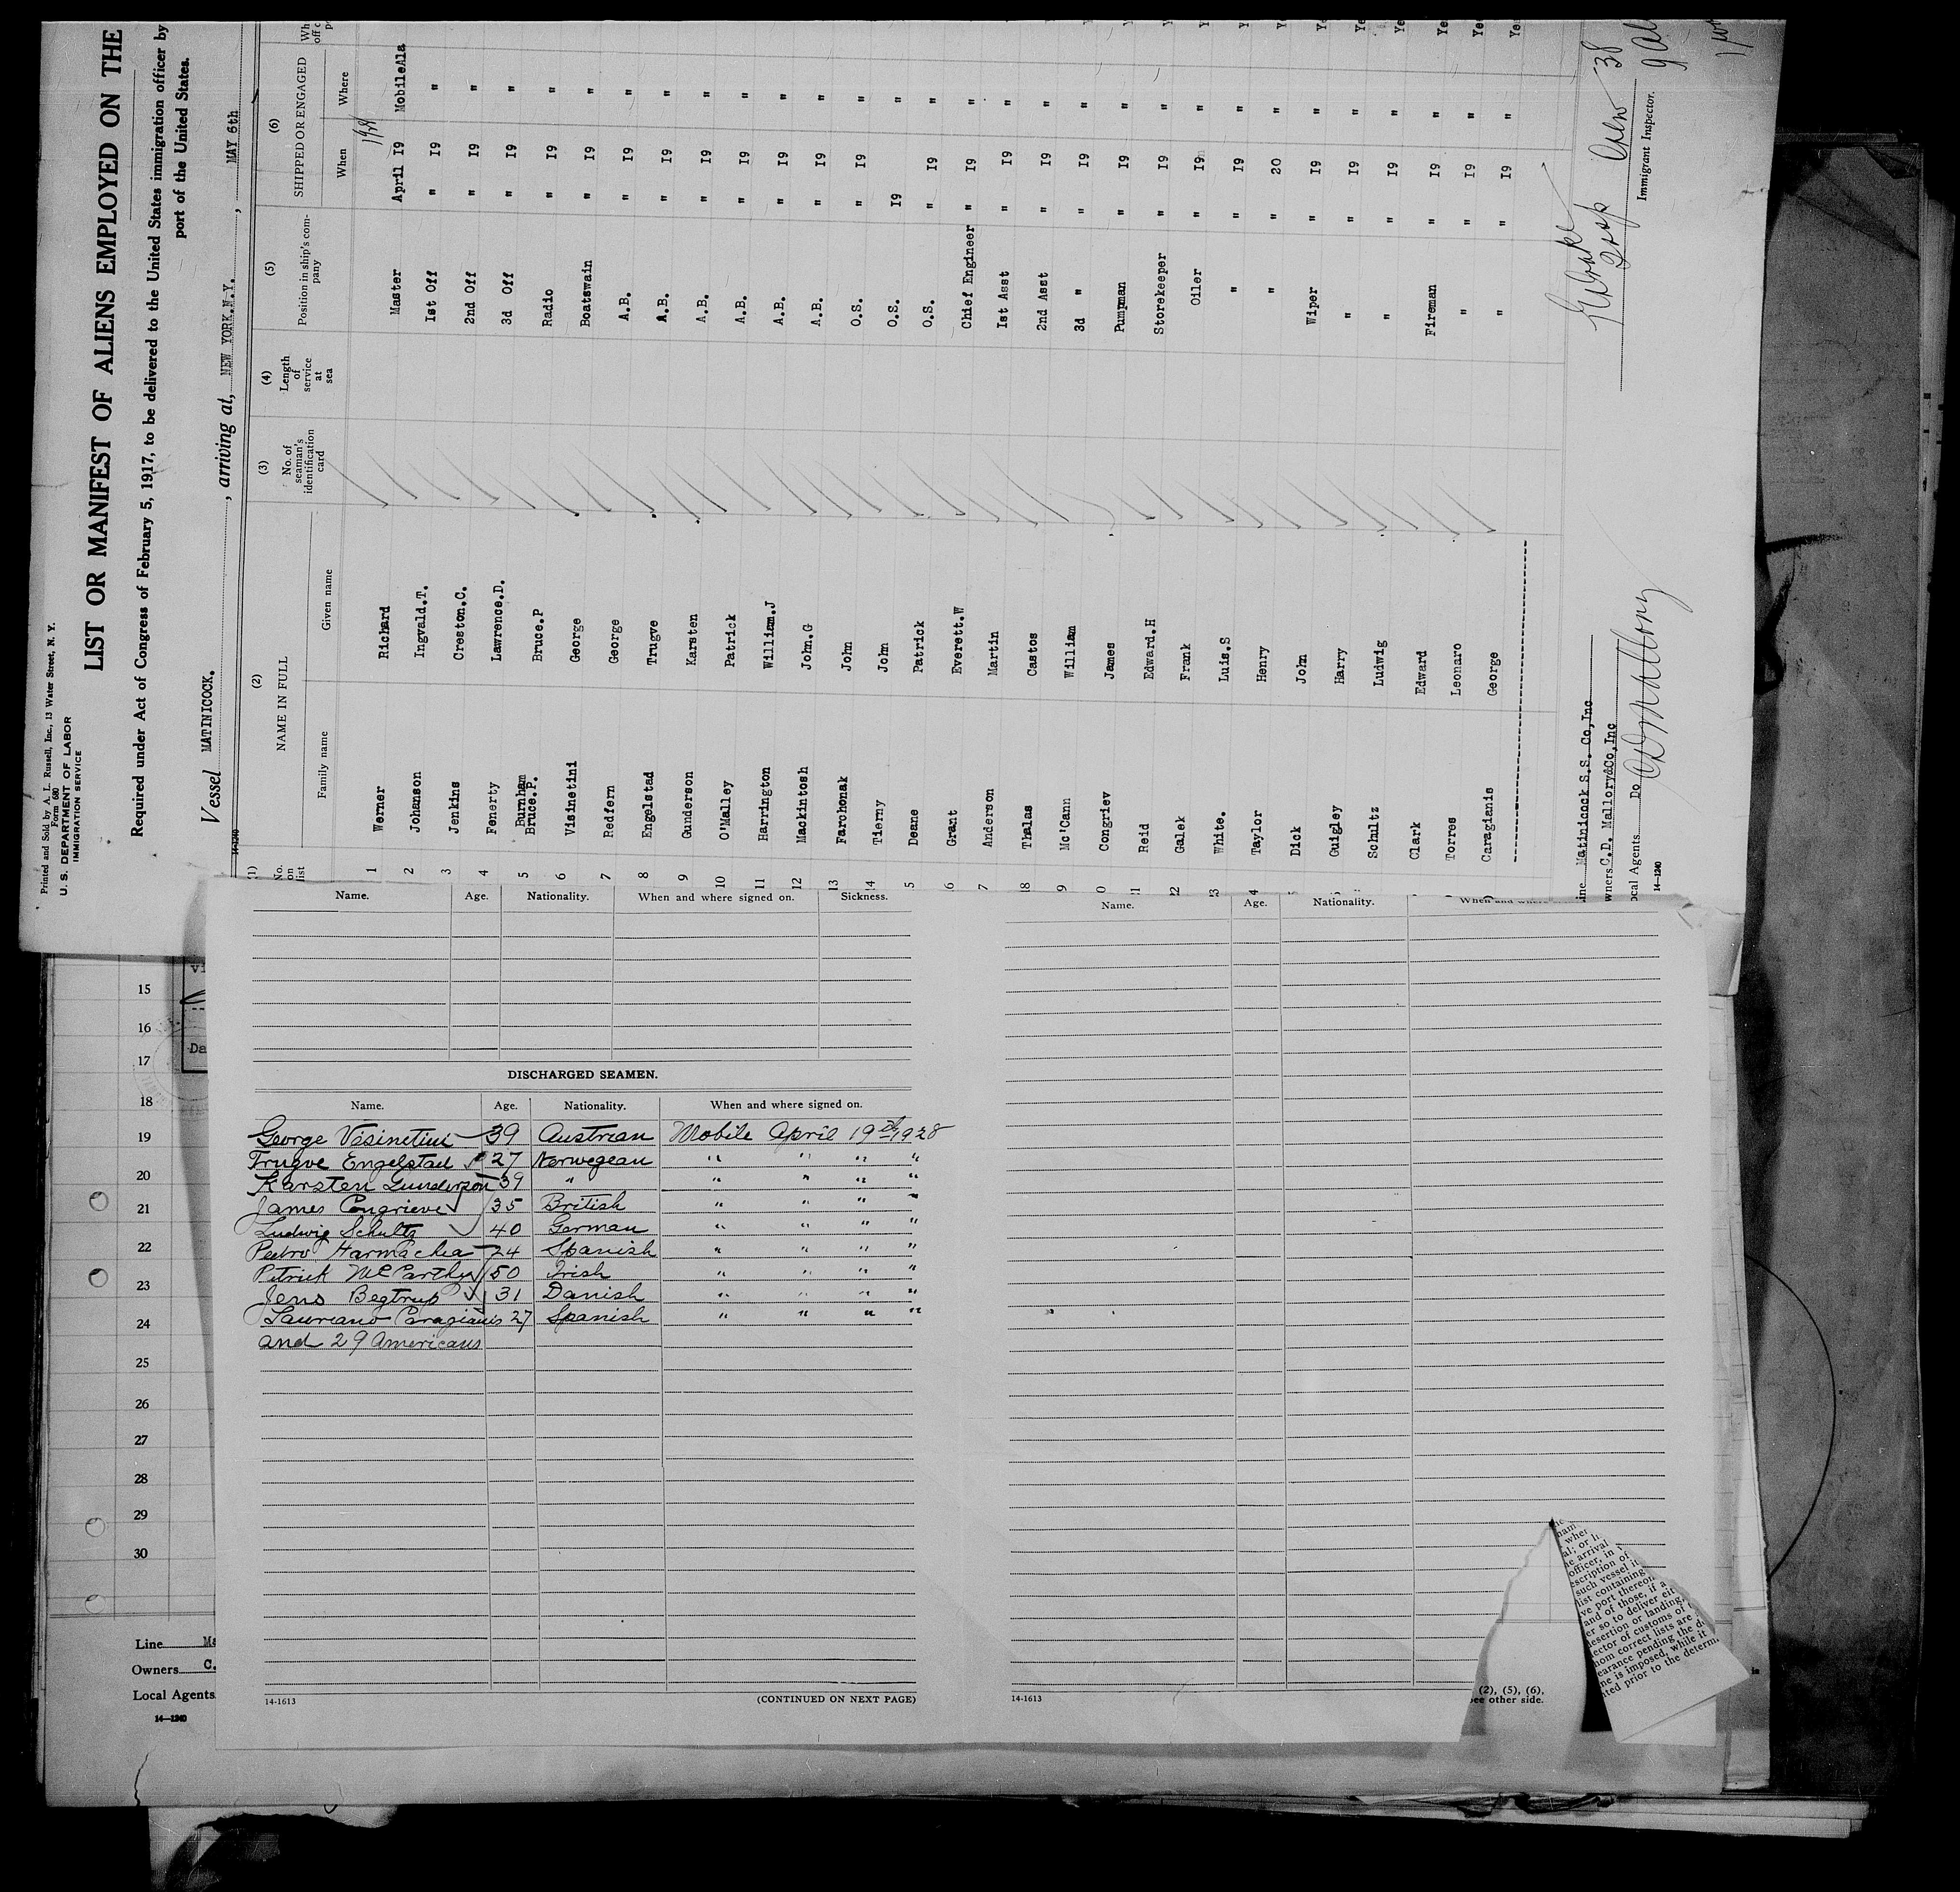 Printed and Sold by A. L. Russell, Inc., 13 Water Street, N. Y.
Form 680
U. S. DEPARTMENT OF LABOR
IMMIGRATION SERVICE
LIST OR MANIFEST OF ALIENS EMPLOYED ON THE
Required under Act of Congress of February 5, 1917, to be delivered to the United States immigration officer by
port of the United States.
Vessel MATINICOCK. , arriving at, NEW YORK.N.Y. , MAY 6th
14-1240
(1) (2) (3) (4) (5) (6)
No. on list NAME IN FULL No. of seaman's identification card Length of service at sea Position in ship's company SHIPED OR ENGAGED
Family name Given name When Where
1928
1 Werner Richard Master April 19 Mobile Ala
2 Johanson Ingvald.T. 1st Off " 19 "
3 Jenkins Creston.C. 2nd Off " 19 "
4 Fenerty Lawrence.D. 3d Off " 19 "
5 Burnham Bruce.P. Bruce.P Radio " 19 "
6 Visinetini George Boatswain " 19 "
7 Redfern George A.B. " 19 "
8 Engelstad Trugve A.B. " 19 "
9 Gunderson Karsten A.B. " 19 "
10 O'Malley Patrick A.B. " 19 "
11 Harrington William.J A.B. " 19 "
12 Mackintosh John.G A.B. " 19 "
13 Farchonak John O.S. " 19 "
14 Tierny John O.S. 19 "
5 Deane Patrick O.S. " 19 "
6 Grant Everett.W Chief Engineer " 19 "
7 Anderson Martin 1st Asst " 19 "
18 Thalas Castos 2nd Asst " 19 "
9 Mc'Cann William 3d " " 19 "
0 Congriev James Pumpman " 19 "
21 Reid Edward.H Storekeeper " 19 "
22 Galek Frank Oiler " 19 "
23 White. Luis.S " " 19 "
4 Taylor Henry " " 20 "
5 Dick John Wiper " 19 "
Guigley Harry " " 19 "
Schultz Ludwig " " 19 "
Clark Edward Fireman " 19 "
Torres Leonaro " " 19 "
Caragianis George " " 19 "
Crew 38
Immigrant Inspector.
ine Matinicock S.S. Co,Inc
wners C.D. Mallory&Co,Inc
ocal Agents Do
14-1240
Name. Age. Nationality. When and where signed on. Sickness.
DISCHARGED SEAMEN.
Name. Age. Nationality. When and where signed on.
George Visinetini 39 Austrian Mobile April 19th 1928
Trugve Engelstad 27 Norwegean " " " "
Karsten Gunderson 39 " " " " "
James Congrieve 35 British " " " "
Ludwig Schultz 40 German " " " "
Pedro Harmachea 24 Spanish " " " "
Patrick McCarthy 50 Irish " " " "
Jens Begtrup 31 Danish " " " "
Laureano Caragianis 27 Spanish " " " "
and 29 Americans
14-1613
(CONTINUED ON NEXT PAGE)
Name. Age. Nationality. When and where
14-1613
(2), (5), (6).
see other side.
15
16
17
18
19
20
21
22
23
24
25
26
27
28
29
30
Da
Line
Owners C.
Local Agents
14-1240
arrival
officer, in
scription of
such vessel
list containing
port thereon
and of those, if a
so to deliver
desertion or landing,
ector of customs of
whom correct lists are
earance pending the
ne is imposed, while it
ted prior to the determ